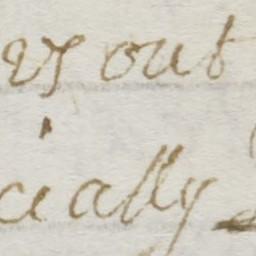 out
cially